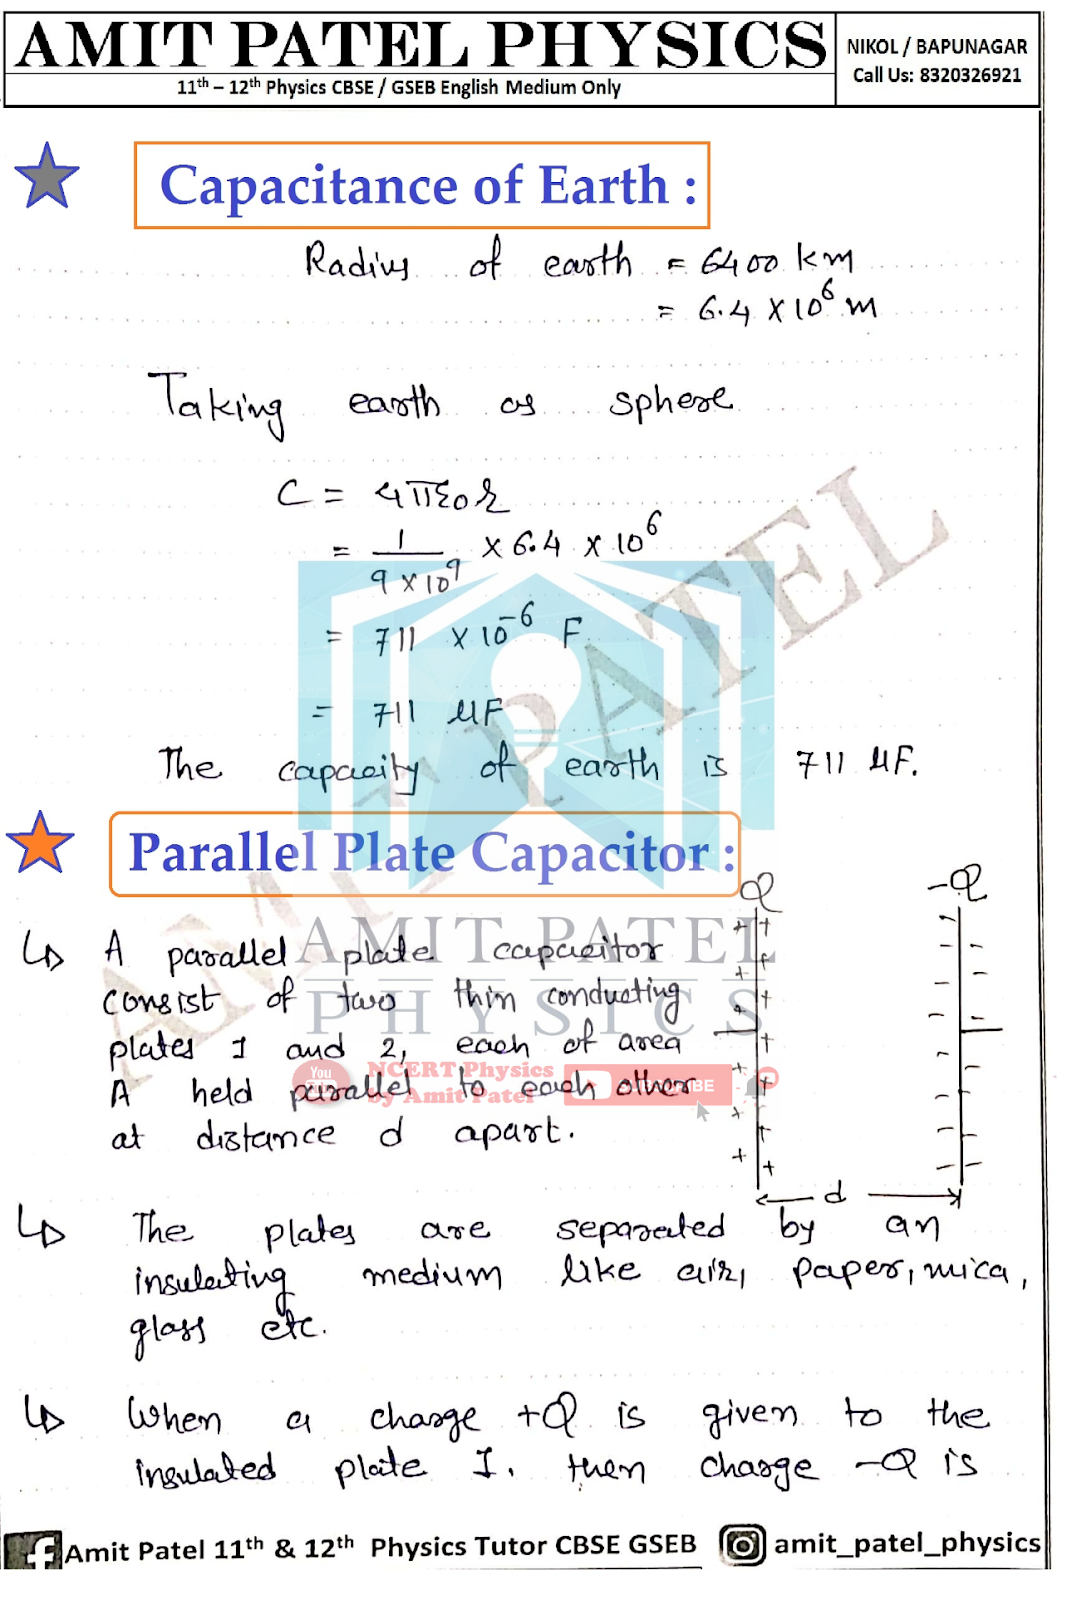 AMIT PATEL PHYSICS
11th – 12th Physics CBSE / GSEB English Medium Only
NIKOL / BAPUNAGAR
Call Us: 8320326921
Capacitance of Earth :
Radius of earth = 6400 km
= 6.4 × 10⁶ m
Taking earth as sphere
C = 4πε₀r
= 1 / 9 × 10⁹ × 6.4 × 10⁶
= 711 × 10⁻⁶ F
= 711 μF
The capacity of earth is 711 μF.
Parallel Plate Capacitor :
Q -Q
A parallel plate capacitor
consist of two thin conducting
plates 1 and 2, each of area
A held parallel to each other
at distance d apart.
d
The plates are separated by an
insulating medium like air, paper, mica,
glass etc.
When a charge +Q is given to the
insulated plate I. then charge -Q is
AMIT PATEL
AMIT PATEL
PHYSICS
You
NCERT Physics
by Amit Patel
Amit Patel 11th & 12th Physics Tutor CBSE GSEB
amit_patel_physics